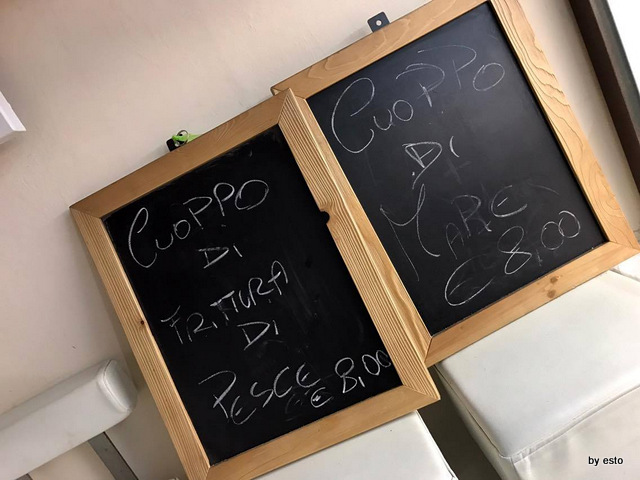 CUOPPO
DI
FRITTURA
DI
PESCE € 8,00
CUOPPO
DI
MARE
€ 8,00
by esto